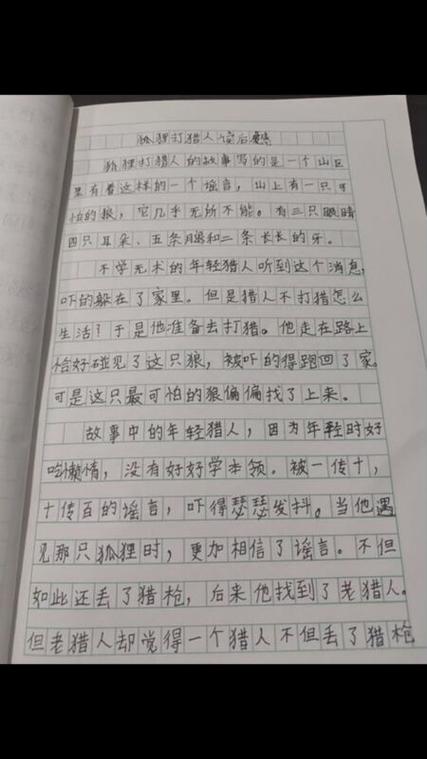 狐狸打猎人读后感
狐狸打猎人的故事写的是一个山区
里有着这样的一个谣言，山上有一只可
怕的狼，它几乎无所不能。有三只眼睛
四只耳朵、五条腿和二条长长的牙。
不学无术的年轻猎人听到这个消息，
吓的躲在了家里。但是猎人不打猎怎么
生活？于是他准备去打猎。他走在路上
恰好碰见了这只狼，被吓的得跑回了家。
可是这只最可怕的狼偏偏找了上来。
故事中的年轻猎人，因为年轻时好
吃懒惰，没有好好学本领。被一传十，
十传百的谣言，吓得瑟瑟发抖。当他遇
见那只狐狸时，更加相信了谣言。不但
如此还丢了猎枪，后来他找到了老猎人。
但老猎人却觉得一个猎人不但丢了猎枪